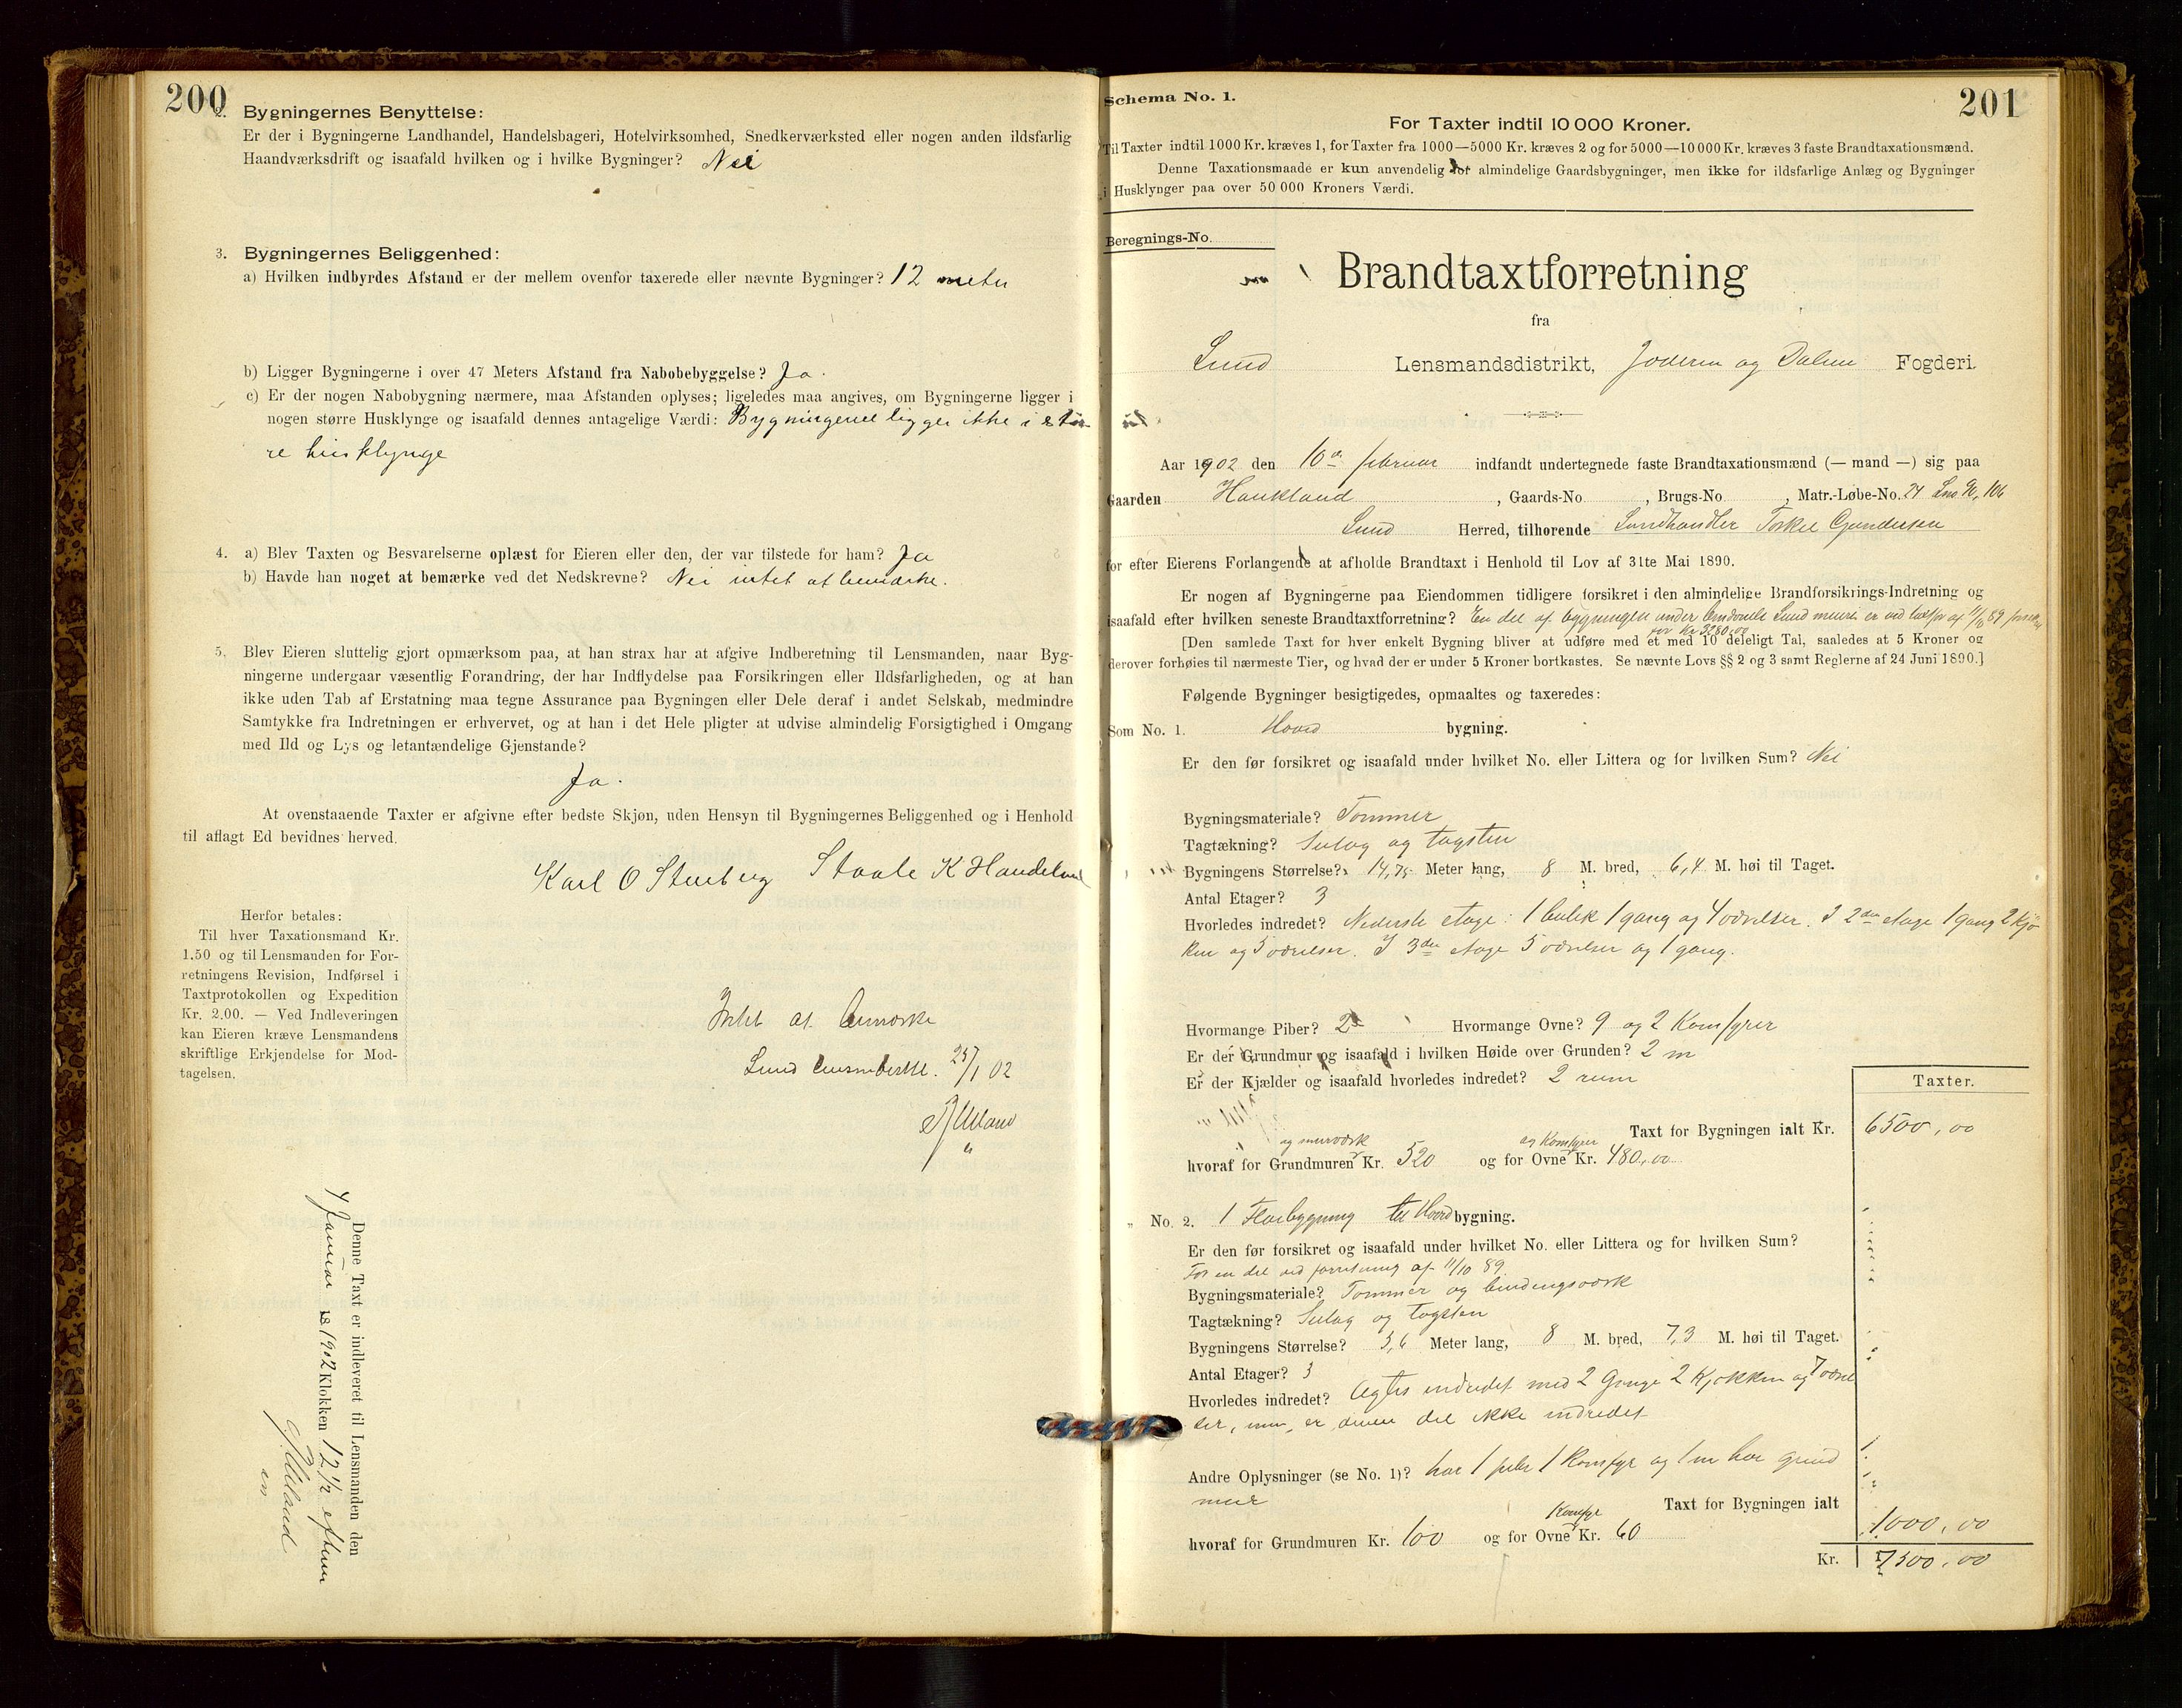 200
2. Bygningernes Benyttelse:
Er der i Bygningerne Landhandel, Handelsbageri, Hotelvirksomhed, Snedkerværksted eller nogen anden ildsfarlig
Haandværksdrift og isaafald hvilken og i hvilke Bygninger? Nei
3. Bygningernes Beliggenhed:
a) Hvilken indbyrdes Afstand er der mellem ovenfor taxerede eller nævnte Bygninger? 12 meter
b) Ligger Bygningerne i over 47 Meters Afstand fra Nabobebyggelse? Ja.
c) Er der nogen Nabobygning nærmere, maa Afstanden oplyses; ligeledes maa angives, om Bygningerne ligger i
nogen større Husklynge og isaafald dennes antagelige Værdi: Bygningerne ligger ikke i stør-
re husklynge
4. a) Blev Taxten og Besvarelserne oplæst for Eieren eller den, der var tilstede for ham? Ja
b) Havde han noget at bemærke ved det Nedskrevne? Nei intet at bemærke.
5. Blev Eieren sluttelig gjort opmærksom paa, at han strax har at afgive Indberetning til Lensmanden, naar Byg-
ningerne undergaar væsentlig Forandring, der har Indflydelse paa Forsikringen eller Ildsfarligheden, og at han
ikke uden Tab af Erstatning maa tegne Assurance paa Bygningen eller Dele deraf i andet Selskab, medmindre
Samtykke fra Indretningen er erhvervet, og at han i det Hele pligter at udvise almindelig Forsigtighed i Omgang
med Ild og Lys og letantændelige Gjenstande?
Ja.
At ovenstaaende Taxter er afgivne efter bedste Skjøn, uden Hensyn til Bygningernes Beliggenhed og i Henhold
til aflagt Ed bevidnes herved.
Karl O Stenberg Staale K Handeland
Herfor betales:
Til hver Taxationsmand Kr.
1.50 og til Lensmanden for For-
retningens Revision, Indførsel i
Taxtprotokollen og Expedition
Kr. 2.00. — Ved Indleveringen
kan Eieren kræve Lensmandens
skriftlige Erkjendelse for Mod-
tagelsen.
Intet at bemærke
Lund 25/1 02
Denne Taxt er indleveret til Lensmanden den
4 Januar 1902 Klokken 12 1/2 efterm
201
Schema No. 1.
For Taxter indtil 10 000 Kroner.
Til Taxter indtil 1000 Kr. kræves 1, for Taxter fra 1000—5000 Kr. kræves 2 og for 5000—10000 Kr. kræves 3 faste Brandtaxationsmænd.
Denne Taxationsmaade er kun anvendelig for almindelige Gaardsbygninger, men ikke for ildsfarlige Anlæg og Bygninger
i Husklynger paa over 50 000 Kroners Værdi.
Beregnings-No.
Brandtaxtforretning
fra
Lund Lensmandsdistrikt, Jæderen og Dalene Fogderi.
Aar 1902 den 10de februar indfandt undertegnede faste Brandtaxationsmænd (— mand —) sig paa
Gaarden Haukland, Gaards-No , Brugs-No , Matr.-Løbe-No. 24 Lnr. 106
Lund Herred, tilhørende Landhandler Torkel Gundersen
for efter Eierens Forlangende at afholde Brandtaxt i Henhold til Lov af 31te Mai 1890.
Er nogen af Bygningerne paa Eiendommen tidligere forsikret i den almindelige Brandforsikrings-Indretning og
isaafald efter hvilken seneste Brandtaxtforretning? En del af bygningen under Lund er ved af 11/10 89
for Kr 3280,00
[Den samlede Taxt for hver enkelt Bygning bliver at udføre med et med 10 deleligt Tal, saaledes at 5 Kroner og
derover forhøies til nærmeste Tier, og hvad der er under 5 Kroner bortkastes. Se nævnte Lovs §§ 2 og 3 samt Reglerne af 24 Juni 1890.]
Følgende Bygninger besigtigedes, opmaaltes og taxeredes:
Som No. 1. Hoved bygning.
Er den før forsikret og isaafald under hvilket No. eller Littera og for hvilken Sum? Nei
Bygningsmateriale? Tømmer
Tagtækning? Sutag og tagsten
Bygningens Størrelse? 14,75 Meter lang, 8 M. bred, 6,4 M. høi til Taget.
Antal Etager? 3
Hvorledes indredet? Nederste etage: 1 butik 1 gang og 4 værelser. I 2den etage 1 gang 2 kjø-
ken og 5 værelser. I 3die etage 5 værelser og 1 gang.
Hvormange Piber? 2 Hvormange Ovne? 9 og 2 Komfyrer
Er der Grundmur og isaafald i hvilken Høide over Grunden? 2 m
Er der Kjælder og isaafald hvorledes indredet? 2 rum
Taxter.
Taxt for Bygningen ialt Kr. 6500,00
og murværk og Komfyrer
hvoraf for Grundmuren Kr. 520 og for Ovne Kr. 480,00
" No. 2. 1 Fløibygning til Hovedbygning.
Er den før forsikret og isaafald under hvilket No. eller Littera og for hvilken Sum?
For en del ved forretning af 11/10 89
Bygningsmateriale? Tømmer og bindingsværk
Tagtækning? Sutag og tagsten
Bygningens Størrelse? 5,6 Meter lang, 8 M. bred, 7,3 M. høi til Taget.
Antal Etager? 3
Hvorledes indredet? Agtes indredet med 2 Gange 2 Kjøkken og 7 værel
ser, men er denne del ikke indredet
Andre Oplysninger (se No. 1)? har 1 pibe 1 Komfyr og 1 m høi grund
mur
Taxt for Bygningen ialt 1000,00
Komfyr
hvoraf for Grundmuren Kr. 100 og for Ovne Kr. 60
Kr. 7500,00